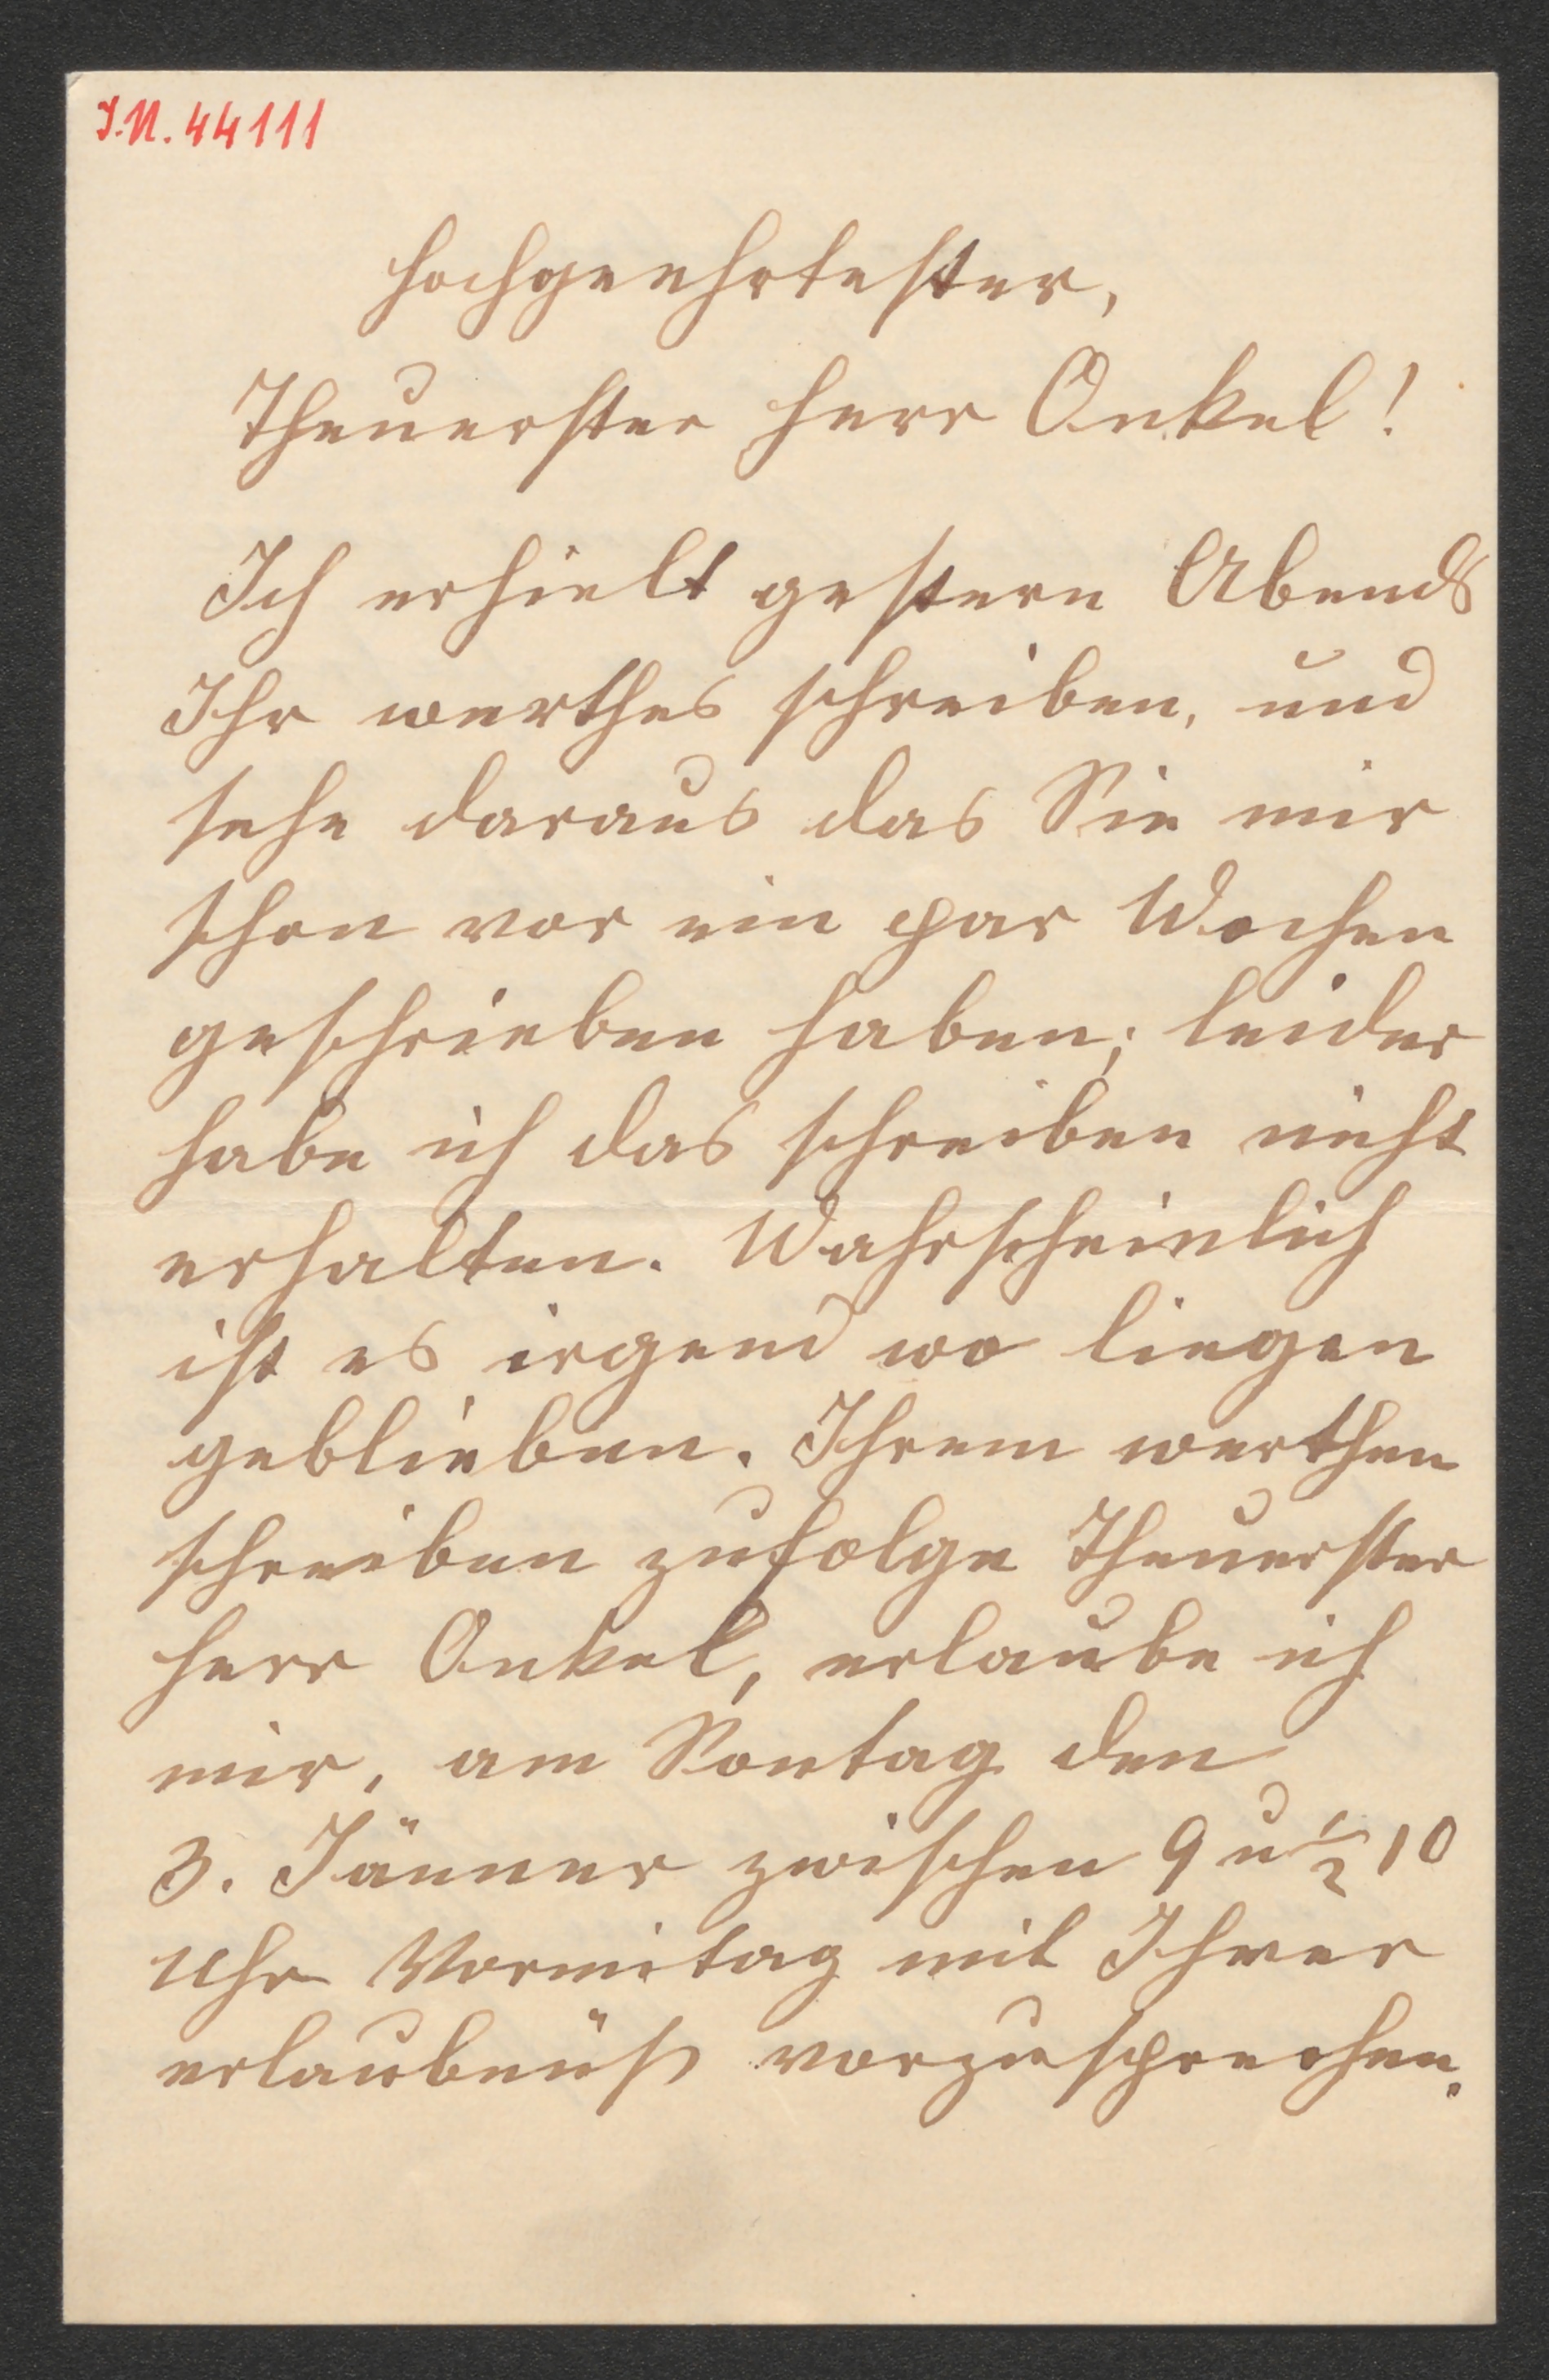 I.N. 44111
Hochgeehrtester,
Theuerster Herr Onkel!
Ich erhielt gestern Abends
Ihr werthes schreiben, und
sehe daraus das Sie mir
schon vor ein par Wochen
geschrieben haben; leider
habe ich das schreiben nicht
erhalten. Wahrscheinlich
ist es irgend wo liegen
geblieben. Ihrem werthen
schreiben zufolge Theuerster
Herr Onkel, erlaube ich
mir, am Sontag den
3. Jänner zwischen 9 u ½ 10
Uhr Vormitag mit Ihrer
erlaubnüß vorzusprechen.